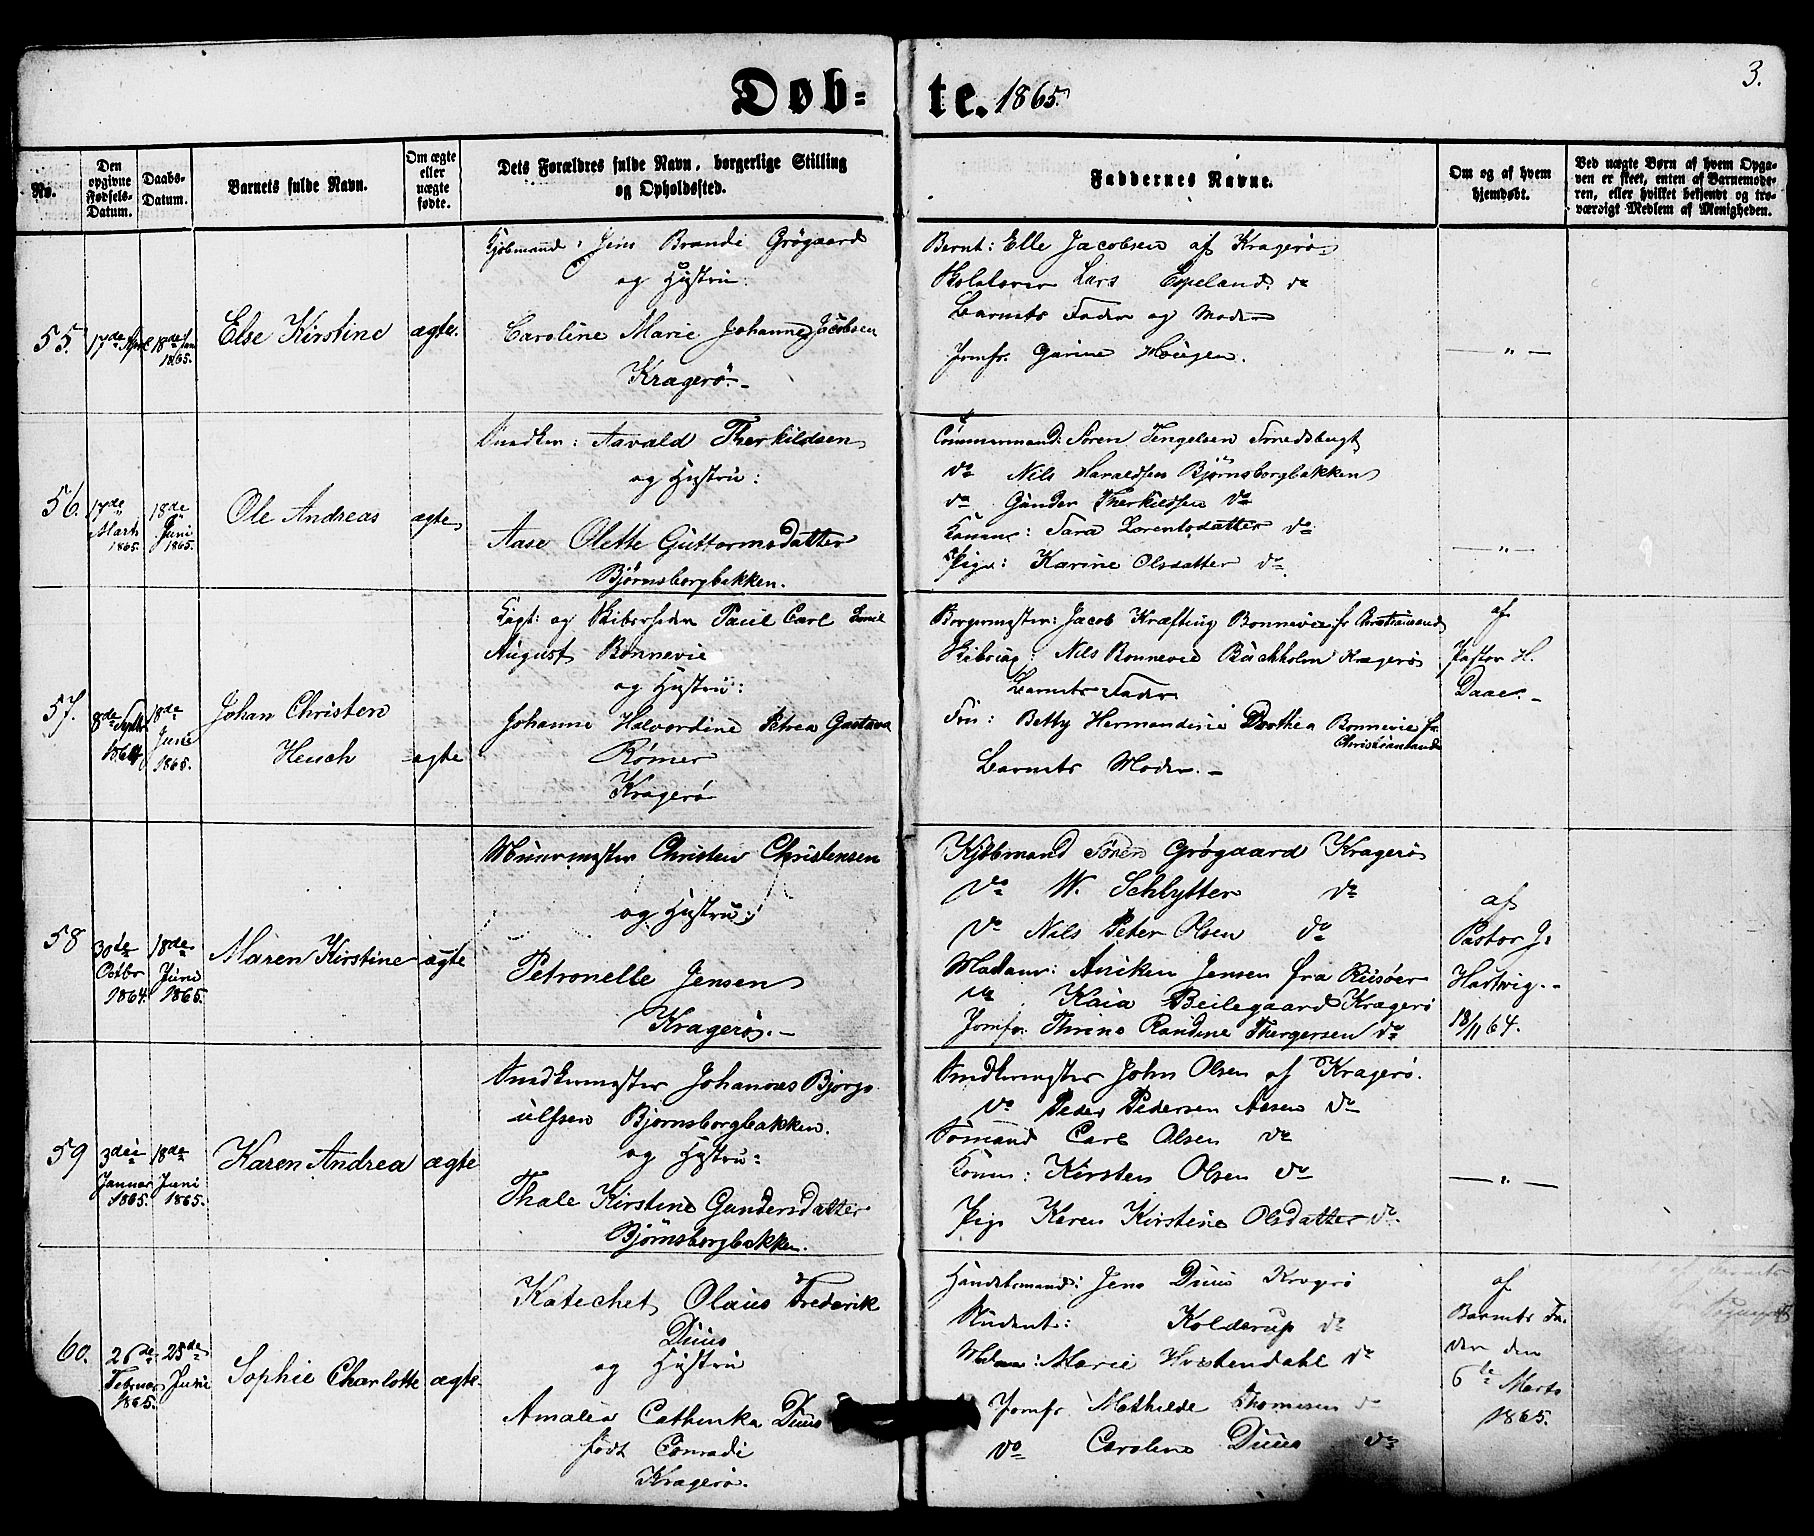 Døb-te. 1865.
3.
No.
Den opgivne Fødsels-Datum.
Daabs-Datum.
Barnets fulde Navn.
Om ægte eller uægte fødte.
Dets Forældres fulde Navn, borgerlige Stilling
og Opholdssted.
Faddernes Navne.
Om og af hvem
hjemdøbt.
Ved uægte Børn af hvem Opga-
ven er skeet, enten af Barnemode-
ren, eller hvilket bekjendt og tro-
værdigt Medlem af Menigheden.
55.
17de April
18de Juni
1865.
Else Kirstine
ægte.
Kjøbmand: Jens Brandi Grøgaard
og Hustru:
Caroline Marie Johannes Jacobsen
Kragerö.-
Bernt: Elle Jacobsen af Kragerø
Lars Espeland do
Barnets Fader og Moder
Jomfr. Gurine Hougen.
— " —
56.
17de
Marts
1865.
18de
Juni
1865.
Ole Andreas
ægte
Snedker: Aavald Therkildsen
og Hustru:
Aase Olette Guttormsdatter
Bjørnsborgbakken.
Tømmermand: Sören
do Nils Haraldsen Bjørnsborgbakken
do Gunder Therkildsen do
Konen: Sara Lorentsdatter do
Pige: Karine Olsdatter do
— " —
57.
8de Septbr
1864
18de
Juni
1865.
Johan Christen
Heuch
ægte
og Skibsreder Paul Carl Emil
August Bonnevie
og Hustru:
Johanne Halvordine Petrea Gustava
Rømer
Kragerø
Borgermester: Jacob Kræfting Bonnevie fr Christiansand
Nils Bonnevie Buchholm Kragerø
Barnets Fader
Frü: Betty Hermandine Dorthea Bonnevie fr
Christiansand
Barnets Moder.-
af
Pastor H.
Daae.-
58
30de
Octbr
1864.
18de
Juni
1865.
Maren Kirstine
ægte
Muurmester Christen Christensen
og Hustru:
Petronelle Jensen
Kragerø.-
Kjøbmand Sören Grøgaard Kragerø
do W. Schlytter do
do Nils Peter Olsen do
Madam: Aniken Jensen fra Riisøer
do Kaia Beilegaard Kragerø
Jomfr. Thrine Randine Thergersen do
af
Pastor J:
Hartvig.-
18/11 64.
59
3die
Januar
1865.
18de
Juni
1865.
Karen Andrea
ægte
Snedkermester Johannes Bjørgo
ulfsen Bjørnsborgbakken.
og Hustru:
Thale Kirstine Gundersdatter
Bjørnsborgbakken.
Snedkermester John Olsen af Kragerø.
do Peder Pedersen Aasen do
Sömand Carl Olsen do
Konen: Kirsten Olsen do
Pige Karen Kirstine Olsdatter do.
— " —
60.
26de
Februar
1865.
25de
Juni
Sophie Charlotte
ægte.
Katechet Olaus Frederik
Duus
og Hustru
Amalia Cathinka Duus
født Conradi
Kragerø.
Handelsmand: Jens Duus Kragerø
Student: Kolderup do
Madam: Marie Hvistendahl do
Jomfr Mathilde Thomesen do
do Caroline Duus do
af
Barnets Fa-
der den
6te Marts
1865.